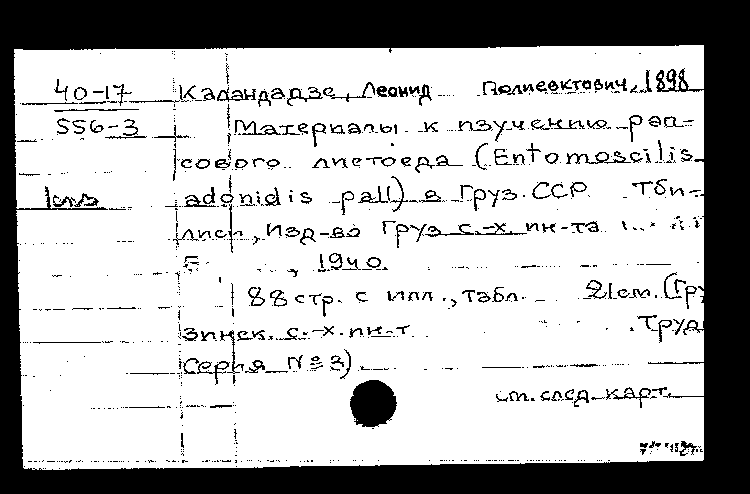 40-17
556-3
Каландадзе, Леонид Полиевктович, 1898
Материалы к изучению рап-
сового листоеда (Entomoscilis
adonidis pall) в Груз. ССР. Тби-
лиси, Изд-во Груз с.-х. ин-та
, 1940.
88 стр. с илл., табл. 21 см. (Гру
зинск. с.-х. ин-т. Труды
Серия № 3).
см. след. карт.